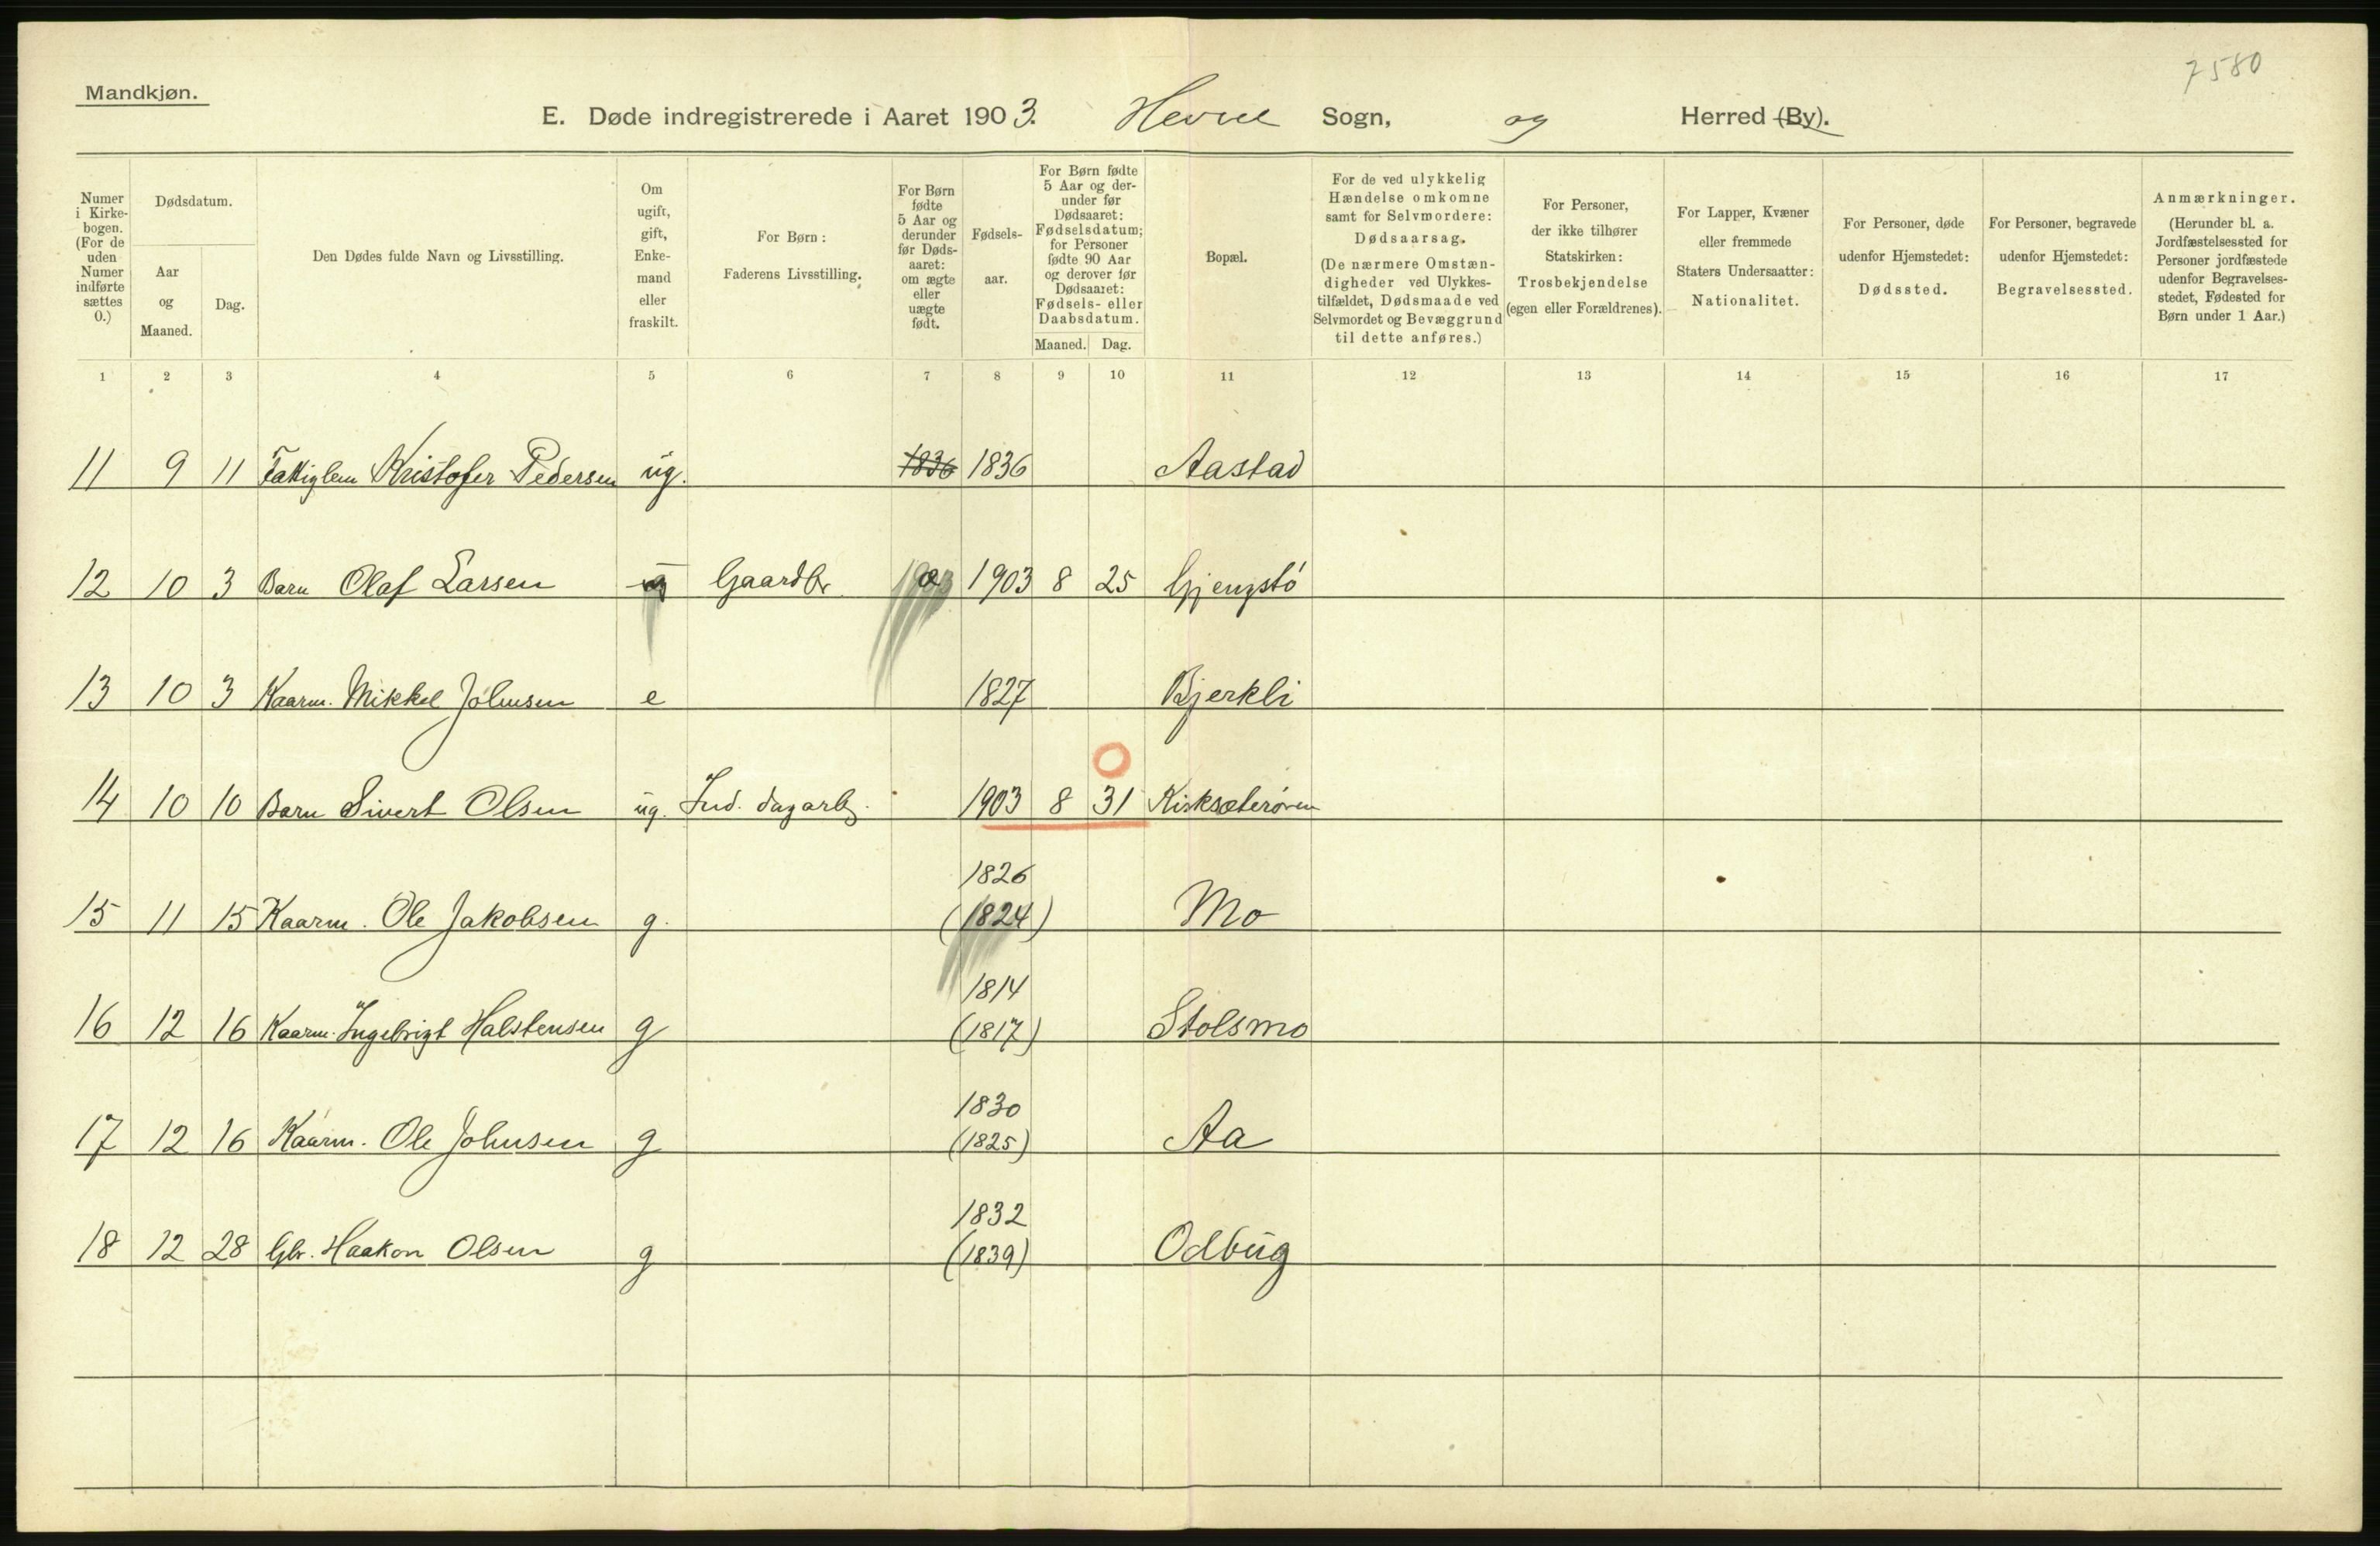 7580
Mandkjøn.
E. Døde indregistrerede i Aaret 1903. Hevne Sogn, og Herred (By).
Numer i Kirkebogen. (For de uden Numer indførte sættes 0.)
Dødsdatum.
Aar og Maaned.
Dag.
Den Dødes fulde Navn og Livsstilling.
Om ugift, gift, Enkemand eller fraskilt.
For Børn: Faderens Livsstilling.
For Børn fødte 5 Aar og derunder før Dødsaaret: om ægte eller uægte født.
Fødselsaar.
For Børn fødte 5 Aar og derunder før Dødsaaret: Fødselsdatum; for Personer fødte 90 Aar og derover før Dødsaaret: Fødsels- eller Daabsdatum.
Maaned. Dag.
Bopæl.
For de ved ulykkelig Hændelse omkomne samt for Selvmordere: Dødsaarsag. (De nærmere Omstændigheder ved Ulykkestilfældet, Dødsmaade ved Selvmordet og Bevæggrund til dette anføres.)
For Personer, der ikke tilhører Statskirken: Trosbekjendelse (egen eller Forældrenes).
For Lapper, Kvæner eller fremmede Staters Undersaatter: Nationalitet.
For Personer, døde udenfor Hjemstedet: Dødssted.
For Personer, begravede udenfor Hjemstedet: Begravelsessted.
Anmærkninger. (Herunder bl. a. Jordfæstelsessted for Personer jordfæstede udenfor Begravelsesstedet, Fødested for Børn under 1 Aar.)
1 2 3 4 5 6 7 8 9 10 11 12 13 14 15 16 17
11 9 11 Fattiglem Kristofer Pedersen ug. 1836 1836 Aastad
12 10 3 Barn Olaf Larsen ug Gaardbr. 1903 8 25 Gjengstó
13 10 3 Kaarm. Mikkel Johnsen e 1827 Bjerkli
14 10 10 Barn Sivert Olsen ug. Ind. dagarb. 1903 8 31 Kirksæterøren
1826
15 11 15 Kaarm. Ole Jakobsen g. (1824) Mo
1814
16 12 16 Kaarm. Ingebrigt Halstensen g (1817) Stolsmo
1830
17 12 16 Kaarm. Ole Johnsen g (1825) Aa
1832
18 12 28 Gbr. Haakon Olsen g (1839) Odbug